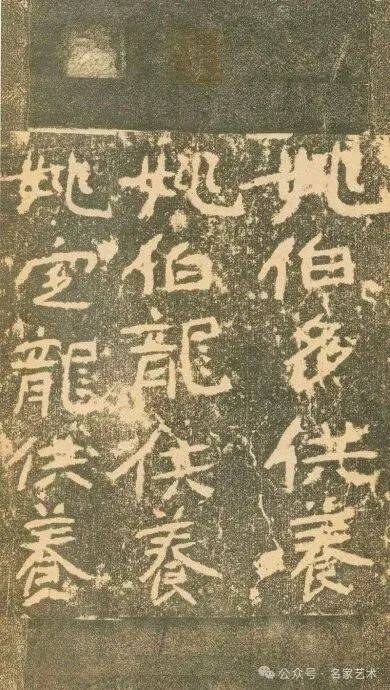 姚伯多供養
姚伯龍供養
姚定龍供養
公众号 · 名家艺术